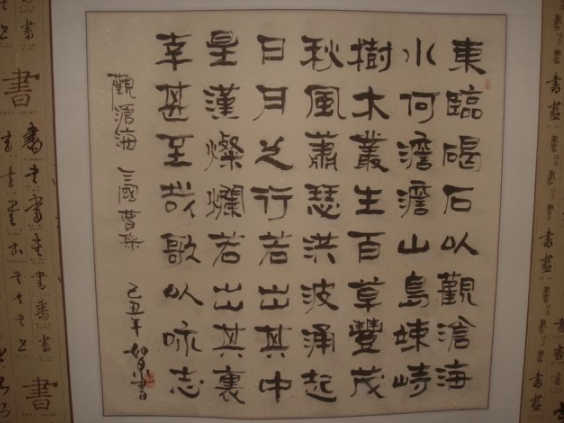 東臨碣石以觀滄海
水何澹澹山島竦峙
樹木叢生百草豐茂
秋風蕭瑟洪波涌起
日月之行若出其中
星漢燦爛若出其裏
幸甚至哉歌以咏志
觀滄海 三國曹操 己丑年 書
書
書